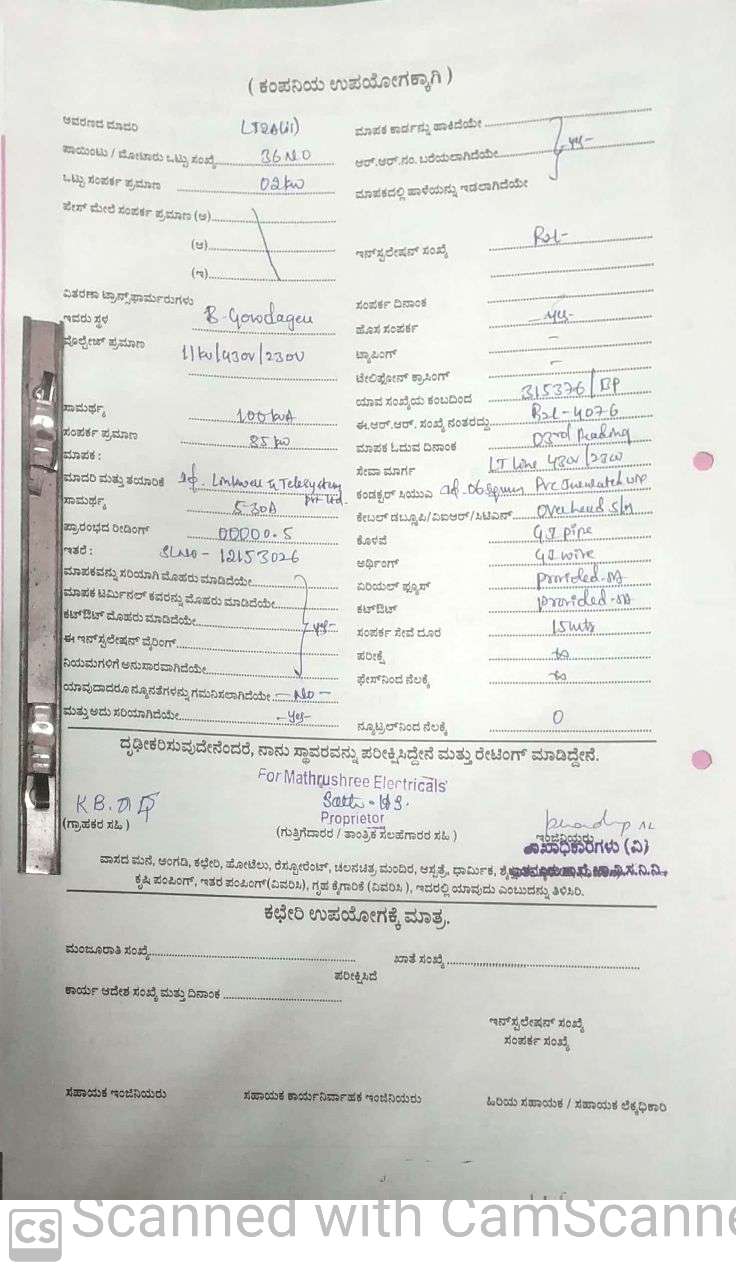 ( ಕಂಪನಿಯ ಉಪಯೋಗಕ್ಕಾಗಿ )
ಆವರಣದ ಮಾದರಿ
ಪಾಯಿಂಟು / ಮೋಟಾರು ಒಟ್ಟು ಸಂಖ್ಯೆ 36 NO
ಒಟ್ಟು ಸಂಪರ್ಕ ಪ್ರಮಾಣ 02kw
ಪೇಸ್ ಮೇಲೆ ಸಂಪರ್ಕ ಪ್ರಮಾಣ (ಅ)
(ಆ)
(ಇ)
ವಿತರಣಾ ಟ್ರಾನ್ಸ್‌ಫಾರ್ಮರುಗಳು
ಇದರು ಸ್ಥಳ B. Gowdageri
ವೊಲ್ಟೇಜ್ ಪ್ರಮಾಣ 11kv/430v/230v
ಸಾಮರ್ಥ್ಯ 100kvA
ಸಂಪರ್ಕ ಪ್ರಮಾಣ 85 kw
ಮಾಪಕ :
ಮಾದರಿ ಮತ್ತು ತಯಾರಿಕೆ Linkwell Telesystem Pvt Ltd.
ಸಾಮರ್ಥ್ಯ 5-30A
ಪ್ರಾರಂಭದ ರೀಡಿಂಗ್ 00000.5
ಇತರೆ : SLNO - 12153026
ಮಾಪಕವನ್ನು ಸರಿಯಾಗಿ ಮೊಹರು ಮಾಡಿದೆಯೇ
ಮಾಪಕ ಟರ್ಮಿನಲ್ ಕವರನ್ನು ಮೊಹರು ಮಾಡಿದೆಯೇ
ಕಟ್‌ಔಟ್ ಮೊಹರು ಮಾಡಿದೆಯೇ yes-
ಈ ಇನ್‌ಸ್ಟಲೇಷನ್ ವೈರಿಂಗ್
ನಿಯಮಗಳಿಗೆ ಅನುಸಾರವಾಗಿದೆಯೇ
ಯಾವುದಾದರೂ ನ್ಯೂನತೆಗಳನ್ನು ಗಮನಿಸಲಾಗಿದೆಯೇ - No -
ಮತ್ತು ಅದು ಸರಿಯಾಗಿದೆಯೇ - yes-
ಮಾಪಕ ಕಾರ್ಡನ್ನು ಹಾಕಿದೆಯೇ
ಆರ್.ಆರ್.ನಂ. ಬರೆಯಲಾಗಿದೆಯೇ yes-
ಮಾಪಕದಲ್ಲಿ ಹಾಳೆಯನ್ನು ಇಡಲಾಗಿದೆಯೇ
ಇನ್‌ಸ್ಟಲೇಷನ್ ಸಂಖ್ಯೆ
ಸಂಪರ್ಕ ದಿನಾಂಕ
ಹೊಸ ಸಂಪರ್ಕ yes-
ಟ್ಯಾಪಿಂಗ್ -
ಟೆಲಿಫೋನ್ ಕ್ರಾಸಿಂಗ್ -
ಯಾವ ಸಂಖ್ಯೆಯ ಕಂಬದಿಂದ 315376/BP
ಈ.ಆರ್.ಆರ್. ಸಂಖ್ಯೆ ನಂತರದ್ದು
ಮಾಪಕ ಓದುವ ದಿನಾಂಕ 03rd Reading
ಸೇವಾ ಮಾರ್ಗ LT line 430v/230v
ಕಂಡಕ್ಟರ್ ಸಿಯುವಿ
ಕೇಬಲ್ ಡಬ್ಲೂಪಿ/ವಿಐಆರ್/ಸಿಟಿಎಸ್ Overhead
ಕೊಳವೆ GI pipe
ಅರ್ಥಿಂಗ್ GI wire
ಏರಿಯಲ್ ಫ್ಯೂಸ್ provided
ಕಟ್‌ಔಟ್ provided
ಸಂಪರ್ಕ ಸೇವೆ ದೂರ 15mts
ಪರೀಕ್ಷೆ
ಫೇಸ್‌ನಿಂದ ನೆಲಕ್ಕೆ
ನ್ಯೂಟ್ರಲ್‌ನಿಂದ ನೆಲಕ್ಕೆ 0
ದೃಢೀಕರಿಸುವುದೇನೆಂದರೆ, ನಾನು ಸ್ಥಾವರವನ್ನು ಪರೀಕ್ಷಿಸಿದ್ದೇನೆ ಮತ್ತು ರೇಟಿಂಗ್ ಮಾಡಿದ್ದೇನೆ.
For Mathrushree Electricals
Proprietor
(ಗ್ರಾಹಕರ ಸಹಿ )
(ಗುತ್ತಿಗೆದಾರರ / ತಾಂತ್ರಿಕ ಸಲಹೆಗಾರರ ಸಹಿ )
ಇಂಜಿನಿಯರು
ಶಾಖಾಧಿಕಾರಿಗಳು (ವಿ)
ವಾಸದ ಮನೆ, ಅಂಗಡಿ, ಕಛೇರಿ, ಹೋಟೆಲು, ರೆಸ್ಟೋರೆಂಟ್, ಚಲನಚಿತ್ರ ಮಂದಿರ, ಆಸ್ಪತ್ರೆ, ಧಾರ್ಮಿಕ,
ಕೃಷಿ ಪಂಪಿಂಗ್, ಇತರ ಪಂಪಿಂಗ್(ವಿವರಿಸಿ), ಗೃಹ ಕೈಗಾರಿಕೆ (ವಿವರಿಸಿ ), ಇದರಲ್ಲಿ ಯಾವುದು ಎಂಬುದನ್ನು ತಿಳಿಸಿರಿ.
ಕಛೇರಿ ಉಪಯೋಗಕ್ಕೆ ಮಾತ್ರ.
ಮಂಜೂರಾತಿ ಸಂಖ್ಯೆ ಖಾತೆ ಸಂಖ್ಯೆ
ಪರೀಕ್ಷಿಸಿದೆ
ಕಾರ್ಯ ಆದೇಶ ಸಂಖ್ಯೆ ಮತ್ತು ದಿನಾಂಕ
ಇನ್‌ಸ್ಟಲೇಷನ್ ಸಂಖ್ಯೆ
ಸಂಪರ್ಕ ಸಂಖ್ಯೆ
ಸಹಾಯಕ ಇಂಜಿನಿಯರು ಸಹಾಯಕ ಕಾರ್ಯನಿರ್ವಾಹಕ ಇಂಜಿನಿಯರು ಹಿರಿಯ ಸಹಾಯಕ / ಸಹಾಯಕ ಲೆಕ್ಕಧಿಕಾರಿ
CS Scanned with CamScanne